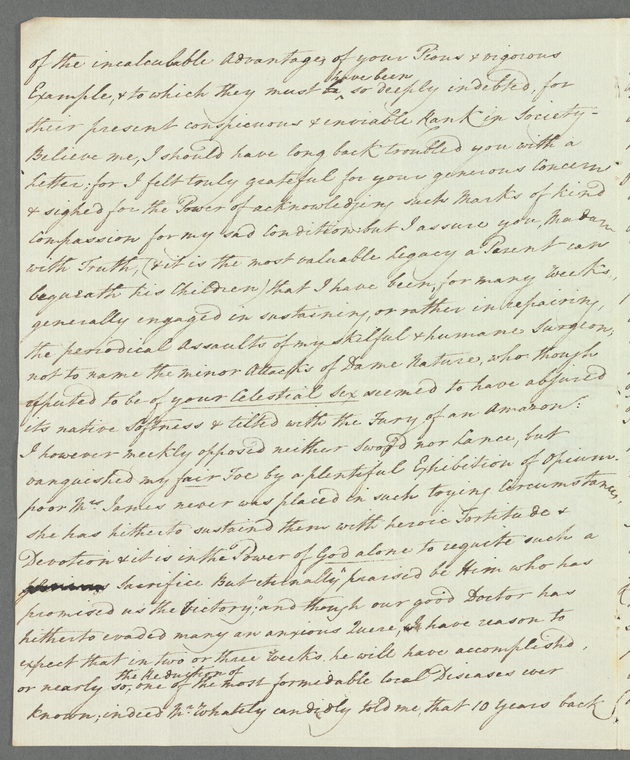 of the incalculable Advantages of your Pious & vigorous
have been
Example, & to which they must be so deeply indebted, for
their present conspicuous & enviable Rank in Society -
Believe me, I should have long back troubled you with a
Letter; for I felt truly grateful for your generous Concern
& sighed for the Power of acknowledging such Marks of kind
Compassion for my sad Condition: but I assure you, Madam
with Truth, (& it is the most valuable Legacy a Parent can
bequeath his Children) that I have been, for many Weeks,
generally engaged in sustaining, or rather in repairing,
the periodical Assaults of my skilful & humane Surgeon,
not to name the minor Attacks of Dame Nature, who though
reputed to be of your Celestial Sex seemed to have abjured
its native Softness & tilted with the Fury of an Amazon:
I however meekly opposed neither Sword nor Lance, but
vanquished my fair Foe by a plentiful Exhibition of Opium -
poor Mrs. James never was placed in such trying Circumstances,
she has hitherto sustained them with heroic Fortitude &
Devotion & it is in the Power of God alone to requite such a
Sacrifice But eternally "praised be Him who has
promised us the Victory", and though our good Doctor has
hitherto evaded many an anxious Quere, I have reason to
expect that in two or three Weeks, he will have accomplishd,
the Reduction of
or nearly so, one of the most formidable local Diseases ever
known; indeed Mr. Whately candidly told me, that 10 Years back